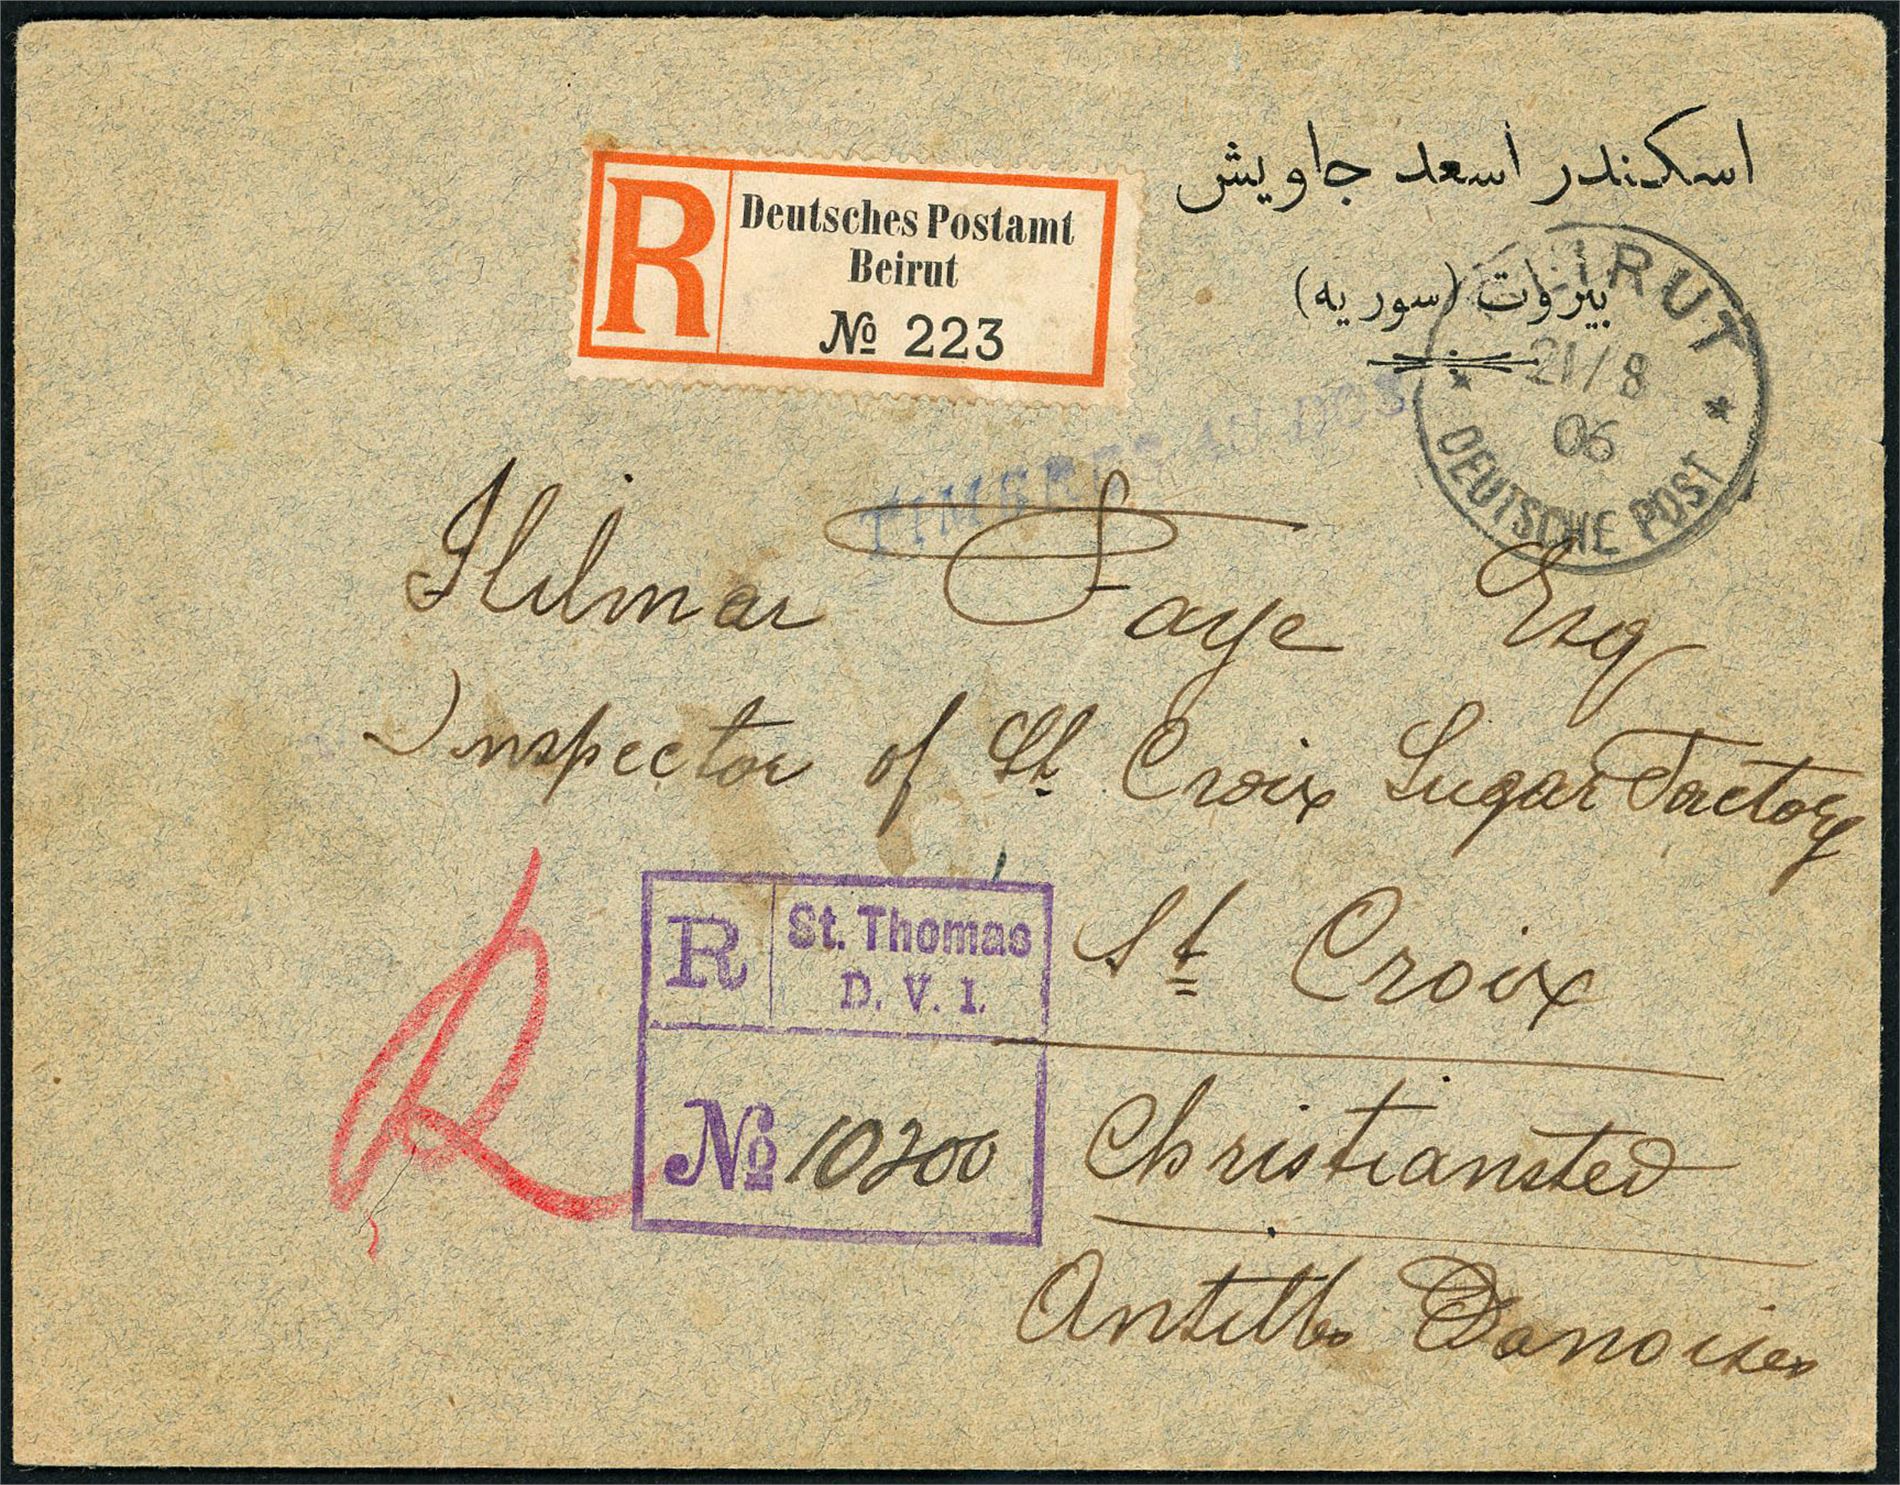 اسكندر اسعد جاويش
بيروت (سوريه)
R
Deutsches Postamt
Beirut
№ 223
BEIRUT
21/8
06
* DEUTSCHE POST *
TIMBRES AU DOS
Hilmar Faye Esq
Inspector of St Croix Sugar Factory
St Croix
Christiansted
Antilles Danoises
R
R
St. Thomas
D. V. I.
№ 10200